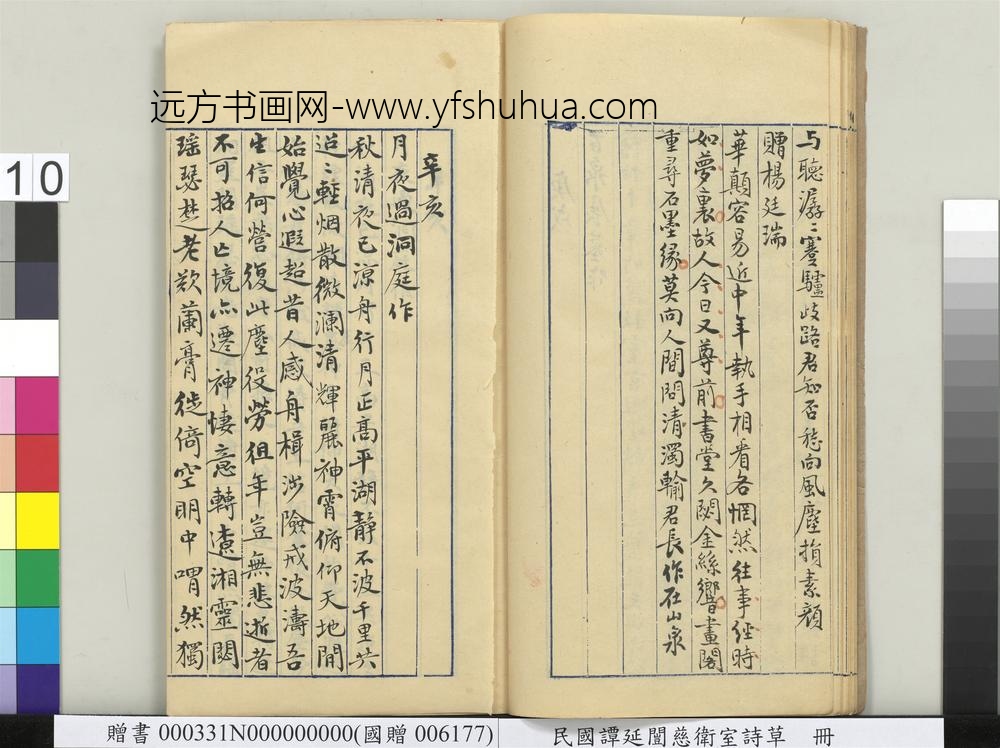 远方书画网-www.yfshuhua.com
与聽潺〻蹇驢歧路君知否愁向風塵損素顏
贈楊廷瑞
華顛容易近中年執手相看各惘然往事經時
如夢裏故人今日又尊前書堂久闕金絲響畫閣
重尋石墨緣莫向人間問清濁輸君長作在山泉
辛亥
月夜過洞庭作
秋清夜已涼舟行月正高平湖靜不波千里共
迢〻輕烟散微瀾清輝麗神霄俯仰天地間
始覺心遐超昔人感舟楫涉險戒波濤吾
生信何營復此塵役勞徂年豈無悲逝者
不可招人亡境亦遷神悽意轉遼湘靈閟
瑤瑟楚老歎蘭膏徙倚空明中喟然獨
10
贈書 000331N000000000(國贈 006177)
民國譚延闓慈衛室詩草 冊